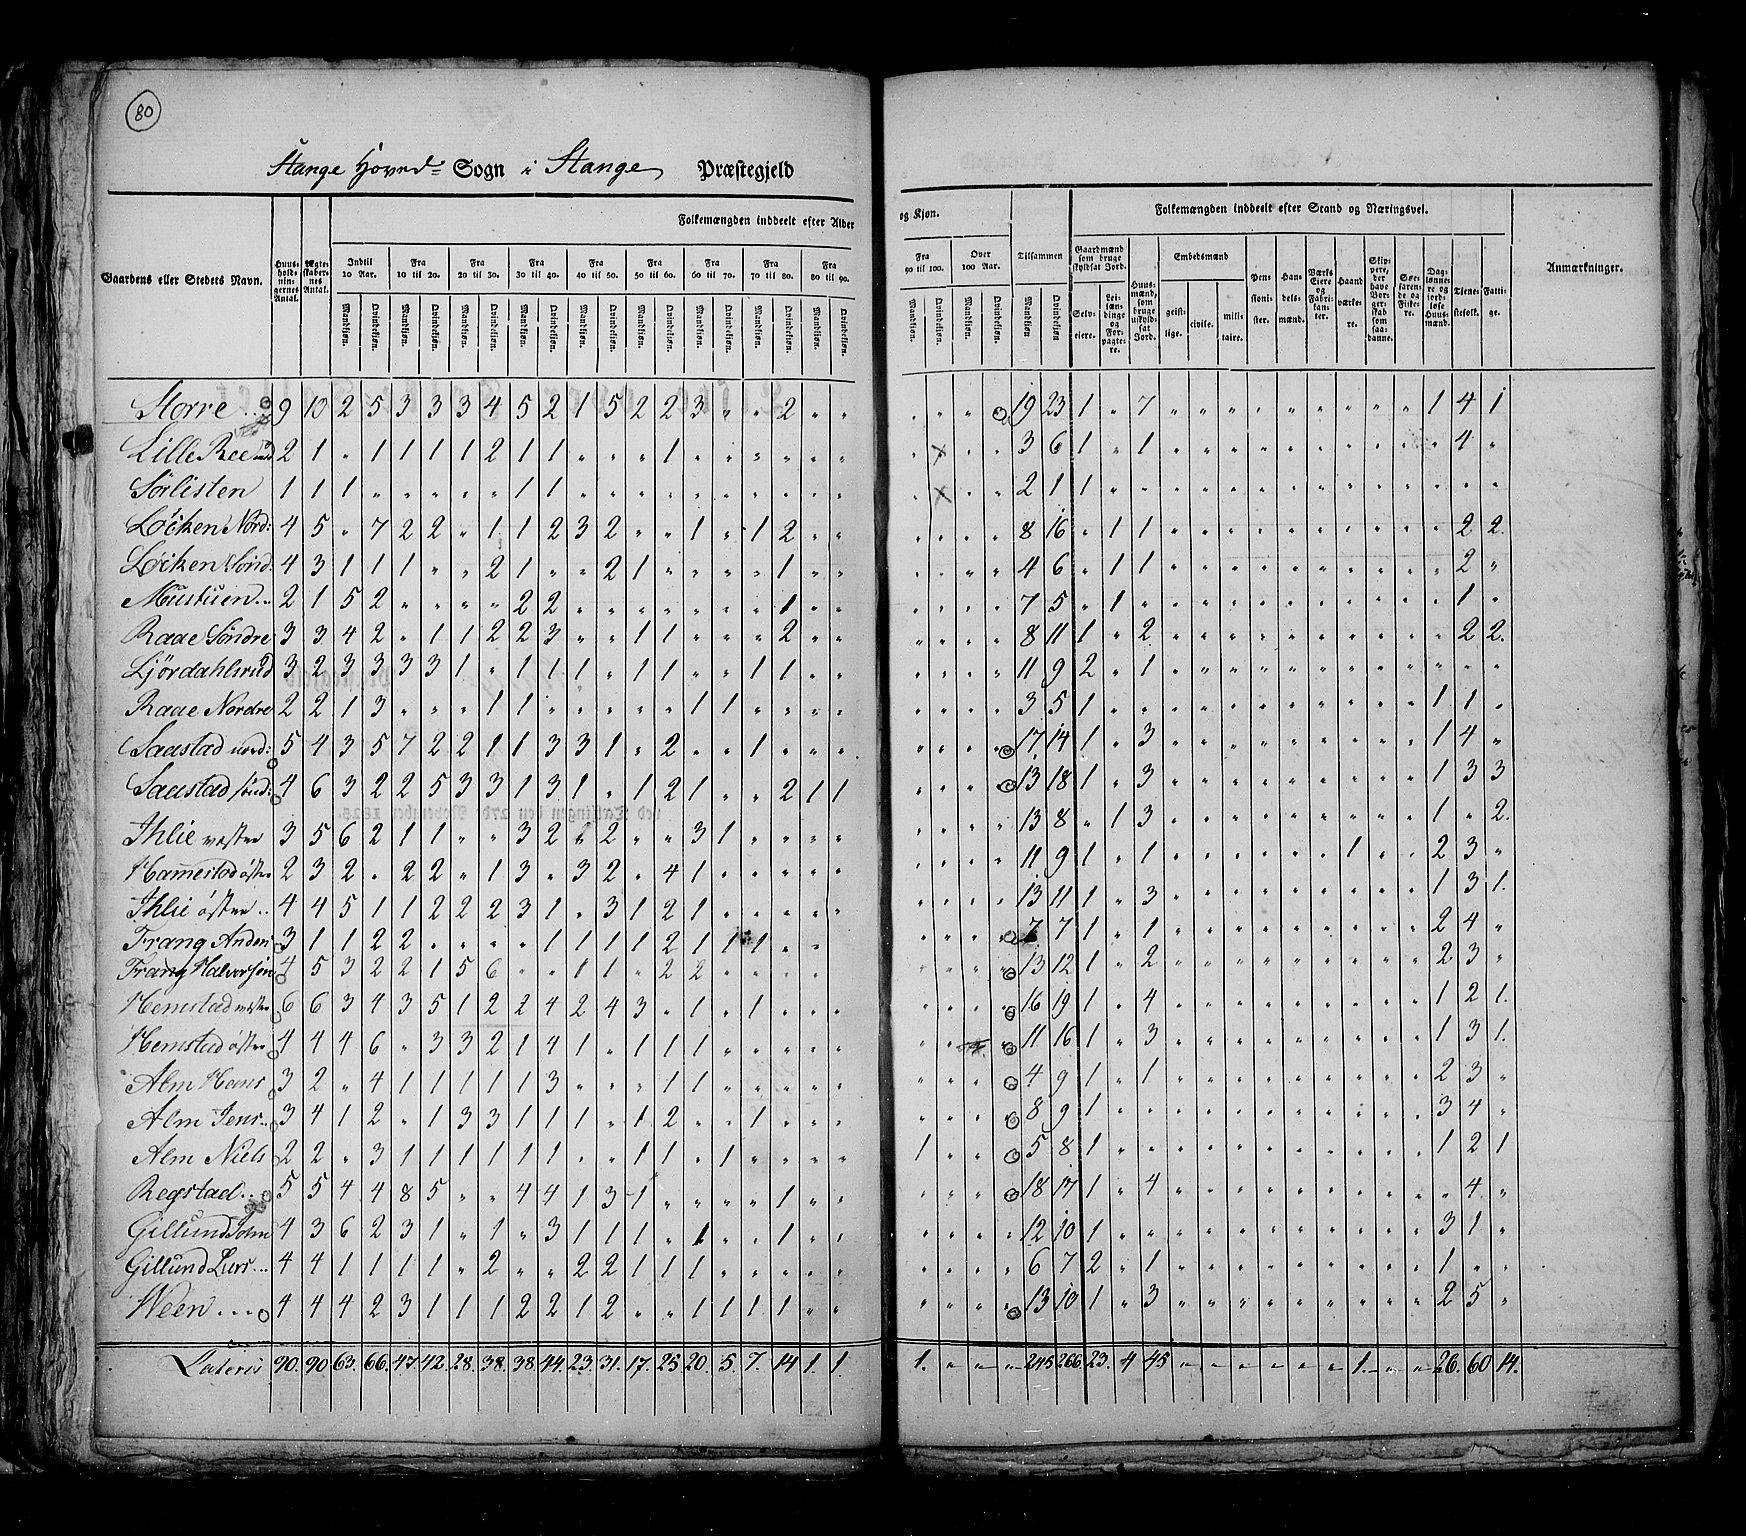 80
Stange Hoved= Sogn i Stange Præstegjeld
Folkemængden inddeelt efter Alder og Kjøn. Folkemængden inddeelt efter Stand og Næringsvei.
Gaardens eller Stedets Navn. Huusholdningernes Antal. Ægteskabernes Antal. Indtil 10 Aar. Fra 10 til 20. Fra 20 til 30. Fra 30 til 40. Fra 40 til 50. Fra 50 til 60. Fra 60 til 70. Fra 70 til 80. Fra 80 til 90. Fra 90 til 100. Over 100 Aar. Tilsammen Gaardmænd som bruge skyldsat Jord. Selveiere. Leilændinge og Forpagtere. Huusmænd, som bruge uskyldsat Jord. Embedsmænd geistlige. civile. militaire. Pensionister. Handelsmænd. Værks Eiere og Fabrikanter. Haandværkere. Skippere, der have Borgerskab som saadanne. Søefarende og Fiskere. Daglønnere og jordløse Huusmænd. Tjenestefolk. Fattige. Anmærkninger.
Mandkjøn. Qvindekjøn. Mandkjøn. Qvindekjøn. Mandkjøn. Qvindekjøn. Mandkjøn. Qvindekjøn. Mandkjøn. Qvindekjøn. Mandkjøn. Qvindekjøn. Mandkjøn. Qvindekjøn. Mandkjøn. Qvindekjøn. Mandkjøn. Qvindekjøn. Mandkjøn. Qvindekjøn. Mandkjøn. Qvindekjøn. Mandkjøn Qvindekjøn.
Storre .. 9 10 2 5 3 3 3 4 5 2 1 5 2 2 3 " " 2 " " " " " " 19 23 1 " 7 " " " " " " " " " 1 4 1
Lille Ree 2 1 " 1 1 1 1 2 1 1 " " " 1 " " " " " " " x " " 3 6 1 " 1 " " " " " " " " " " 4 "
Sørlisten 1 1 1 " " " " " 1 1 " " " " " " " " " " " x " " 2 1 1 " " " " " " " " " " " " " "
Løcken Nord: 4 5 " 7 2 2 " 1 1 2 3 2 " " 1 " 1 2 " " " " " " 8 16 " 1 1 " " " " " " " " " " 2 2.
Løcken Sønd. 4 3 1 1 1 " " 2 1 " " 2 1 " " " " 1 " " " " " " 4 6 " 1 1 " " " " " " " " " " 2 "
Mustuen .. 2 1 5 2 " " " " 2 2 " " " " " " " 1 " " " " " " 7 5 " 1 " " " " " " " " " " " 1 "
Raae Søndre 3 3 4 2 " 1 1 2 2 3 " " 1 1 " " " 2 " " " " " " 8 11 1 " 2 " " " " " " " " " " 2 2.
Ljørdahlsrud 3 2 3 3 3 3 1 " 1 1 1 " 1 1 " " 1 1 " " " " " " 11 9 2 " 1 " " " " " " " " " " " "
Raae Nordre 2 2 1 3 " " " 1 1 " " " " " 1 1 " " " " " " " " 3 5 1 " " " " " " " " " " " 1 1 "
Saastad nord: 5 4 3 5 7 2 2 1 1 3 3 1 " 2 " " 1 " " " " " " " 17 14 1 " 3 " " " " " " " " " 1 4 "
Saastad sønd: 4 6 3 2 2 5 3 3 1 3 1 " 1 2 1 " " 2 1 1 " " " " 13 18 1 " 3 " " " " " " " " " 1 3 3
Ihlie vestre 3 5 6 2 1 1 " " 3 2 " 2 " " 3 1 " " " " " " " " 13 8 " 1 3 " " " " " " " " " 1 " 2.
Hamestad østre 2 3 2 " 2 2 " 1 3 " 3 2 " 4 1 " " " " " " " " " 11 9 1 " 1 " " " " " " 1 " " 2 3 "
Ihlie østre .. 4 4 5 1 1 2 2 2 3 1 " 3 1 2 1 " " " " " " " " " 13 11 1 " 3 " " " " " " " " " 1 3 1.
Frang Anders 3 1 1 2 2 " " " " 1 1 1 1 2 1 1 1 " " " " " " " 7 7 1 " 1 " " " " " " " " " 2 4 "
Frang Halvorsen 4 5 3 2 2 1 5 6 " " 1 1 " 2 2 " " " " " " " " " 13 12 1 " 2 " " " " " " " " " 2 3 "
Hemstad vestre 6 6 3 4 3 5 1 2 2 4 2 4 3 " 1 " 1 " " " " " " " 16 19 1 " 4 " " " " " " " " " 1 2 1.
Hemstad østre 4 4 4 6 " 3 3 2 1 4 1 " 1 1 1 " " " " " " " " " 11 16 1 " 3 " " " " " " " " " 1 3 1.
Alm Hans 3 2 " 4 1 1 1 1 1 3 " " " 1 1 " " " " " " " " " 4 9 1 " 1 " " " " " " " " " 2 3 "
Alm Jens .. 3 4 1 2 " 1 3 3 1 1 1 " 1 2 " " 1 " " " " " " " 8 9 1 " " " " " " " " " " " 3 4 "
Alm Niels 2 2 " 3 1 1 1 1 1 1 " " 1 1 " 1 " " " " 1 " " " 5 8 1 " " " " " " " " " " " 1 2 1
Regstad .. 5 5 4 4 8 5 " " 4 4 1 3 1 " " " " 1 " " " " " " 18 17 1 " 4 " " " " " " " " " " 4 "
Gillund John 4 3 6 2 3 1 " 1 " 3 1 1 1 " 1 " " 1 " " " " " " 12 10 1 " " " " " " " " " " " 3 1 "
Gillund Lars ... 4 4 1 1 1 1 " 2 " " 2 2 1 1 1 " " " " " " " " " 6 7 2 " 1 " " " " " " " " " 1 " "
Ween .... 4 4 4 2 3 1 1 1 2 2 1 2 " " 1 1 1 1 " " " " " " 13 10 1 " 3 " " " " " " " " " 2 5 "
Lateris 90. 90 63. 66. 47. 42. 28. 38. 38. 44. 23. 31. 17. 25 20. 5. 7. 14 1. 1. 1. " " " 245 266. 23. 4 45 " " " " " " 1. " " 26. 60 14.